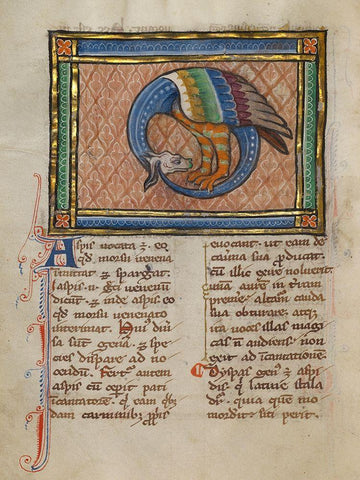 Aspis vocata ꝫ. eo
qđ morsu venena
inmitat ⁊ spargat.
ſaspis. n. greci venenū
dicūt. ⁊ inde aspis. eo
qđ morsu venenato
interimat. Huius diū
sa sūt genera. ⁊ spe
cies dispare ad no
cendū. Fertur autem
aspis cū ceperit pati
īcantatorē. q̄ eam q̄bꝫ
dam carminibꝫ pp̄riis
evocant. ut eam de
caūna sua producat.
cū illuc exire noluerit.
unā aurē in t̄ram
premit. alteram cauda
sua obturat. atqꝫ
ita voces illas magi
cas n̄ audiens. non
exit ad īcantationē.
Dispas genus ꝫ aspi
dis. q̄ latine situla
dr̄. quia quē mo
mordit siti perit.